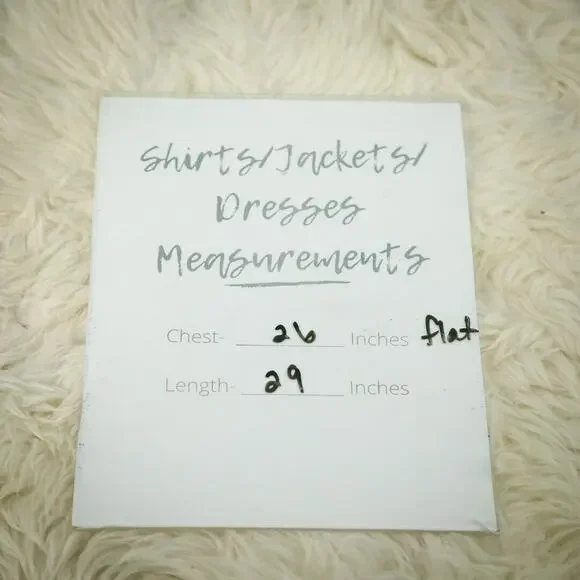 Shirts/Jackets/
Dresses
Measurements
Chest- 26 Inches flat
Length- 29 Inches